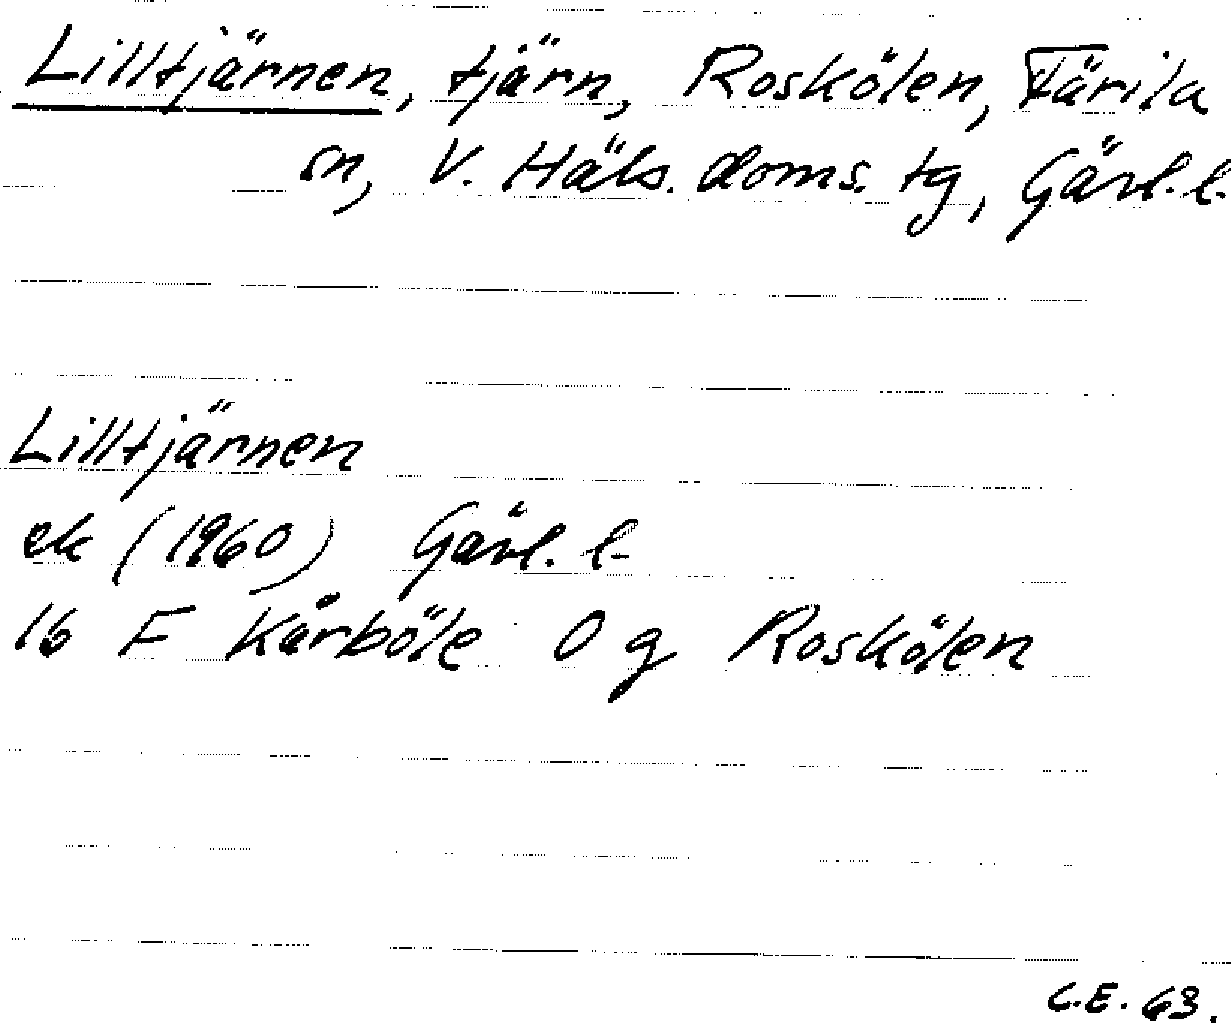 Lilltjärnen, tjärn, Roskölen, Färila
sn, V. Häls. doms. tg, Gävl. l.
Lilltjärnen
ek (1960) Gävl. l.
16 F Kårböle 0 g Roskölen
C.E. 63.